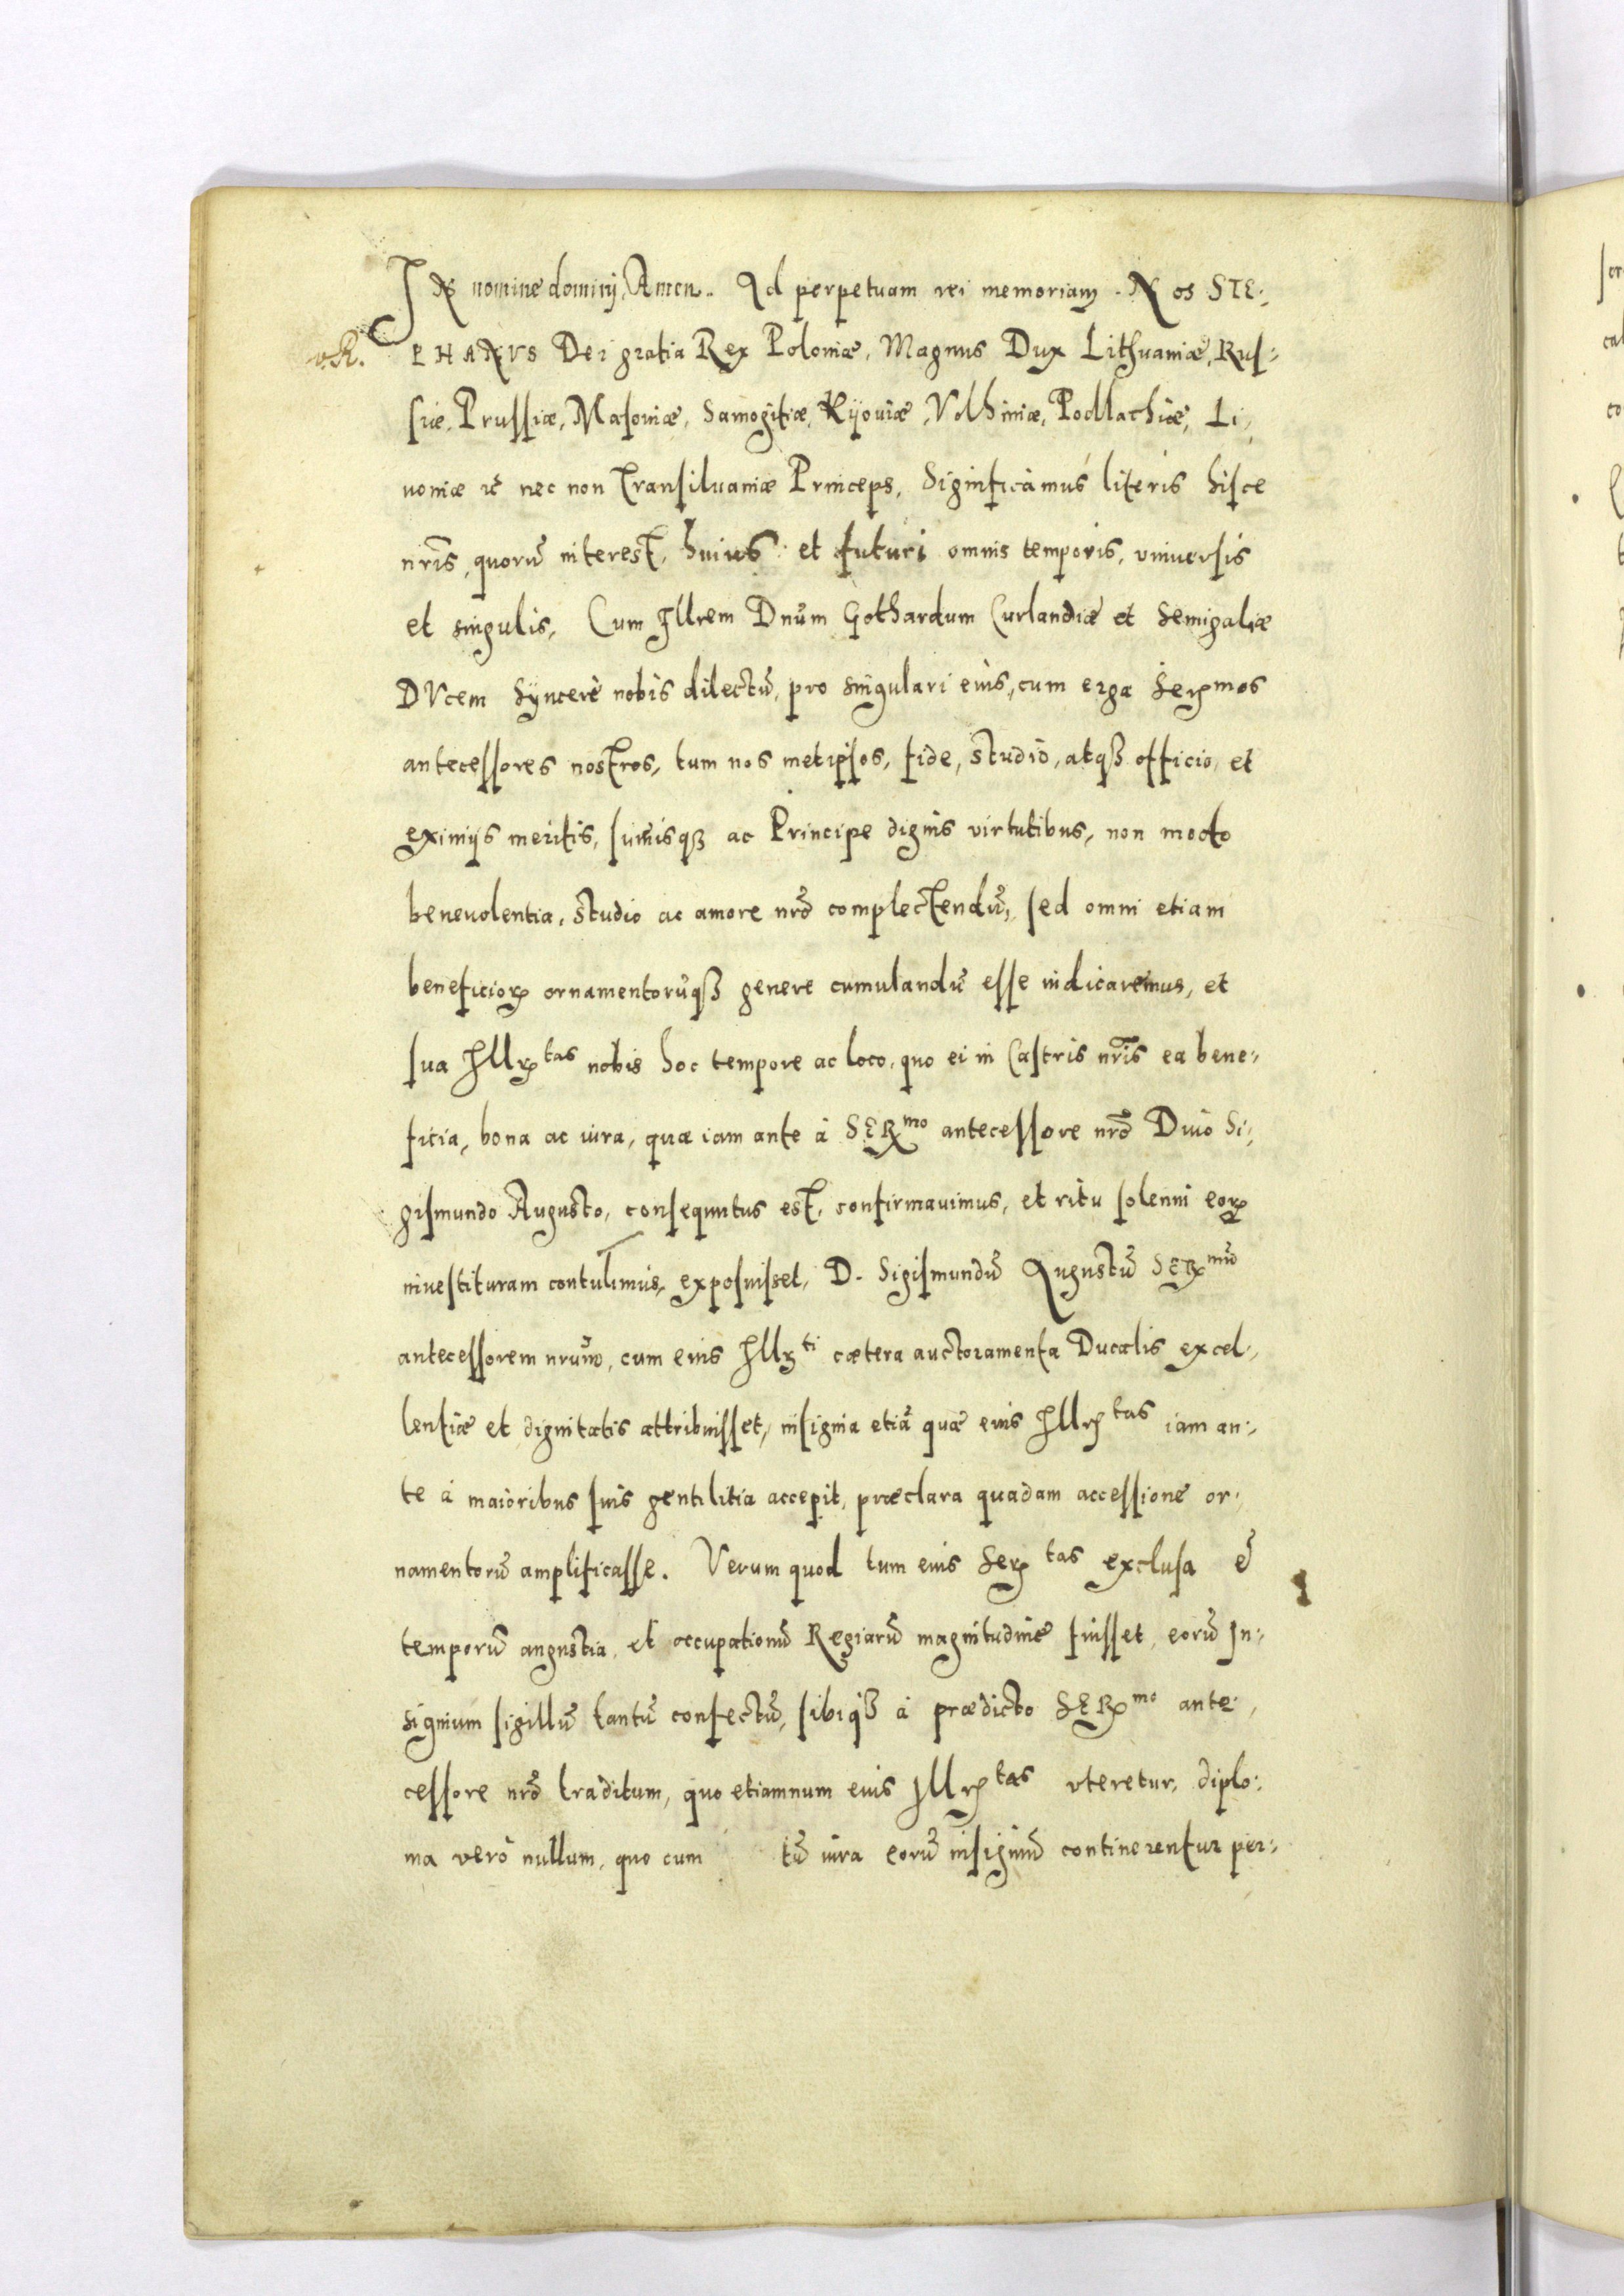 IN nomine dominj, Amen. Ad perpetuam rei memoriam. Nos STE:
v.R. PHANVS Dei gratia Rex Poloniæ, Magnus Dux Lithuaniæ, Rus:
siæ, Prussiæ, Masouiæ, Samogitiæ, Kijouiæ, Volhiniæ, Podlachiæ, Li:
uoniæ &c nec non Transiluaniæ Princeps, Significamus literis hisce
nrĩs, quorũ interest, huius et futuri omnis temporis, vniuersis
et singulis, Cum Illrem Dnum Gothardum Curlandiæ et Semigaliæ
DVcem Synceré nobis dilectũ, pro singulari eius, cum erga Serꝫmos
antecessores nostros, tum nos metipsos, fide, studio, atqꝫ officio, et
eximijs meritis, sum̃isqꝫ ac Principe dignis virtutibus, non modo
beneuolentia, studio ac amore nrõ complectendũ, sed omni etiam
beneficioꝝ ornamentorũqꝫ genere cumulandũ esse iudicaremus, et
sua Illꝝtas nobis hoc tempore ac loco, quo ei in Castris nrĩs ea bene:
ficia, bona ac iura, quæ iam ante á SERmo antecessore nrõ Diuo Si:
gismundo Augusto, consequutus est, confirmauimus, et ritu solenni eoꝝ
inuestituram contulimus, exposuisset, D. Sigismundũ Augustũ SERmũ
antecessorem nrum̃, cum eius Illꝝti cætera auctoramenta Ducalis excel:
lentiæ et dignitatis attribuisset, insignia etiã quæ eius Illꝝtas iam an:
te á maioribus suis gentilitia accepit, præclara quadam accessione or:
namentorũ amplificasse. Verum quod tum eius Serꝝtas exclusa é
temporũ angustia, et occupationũ Regiarũ magnitudine fuisset, eorũ In:
signium sigillũ tantũ confectũ, sibiqꝫ á prædicto SERmo ante:
cessore nrõ traditum, quo etiamnum eius Illꝝtas vteretur, diplo:
ma veró nullum, quo cum tũ iura eorũ insigniũ continerentur per: